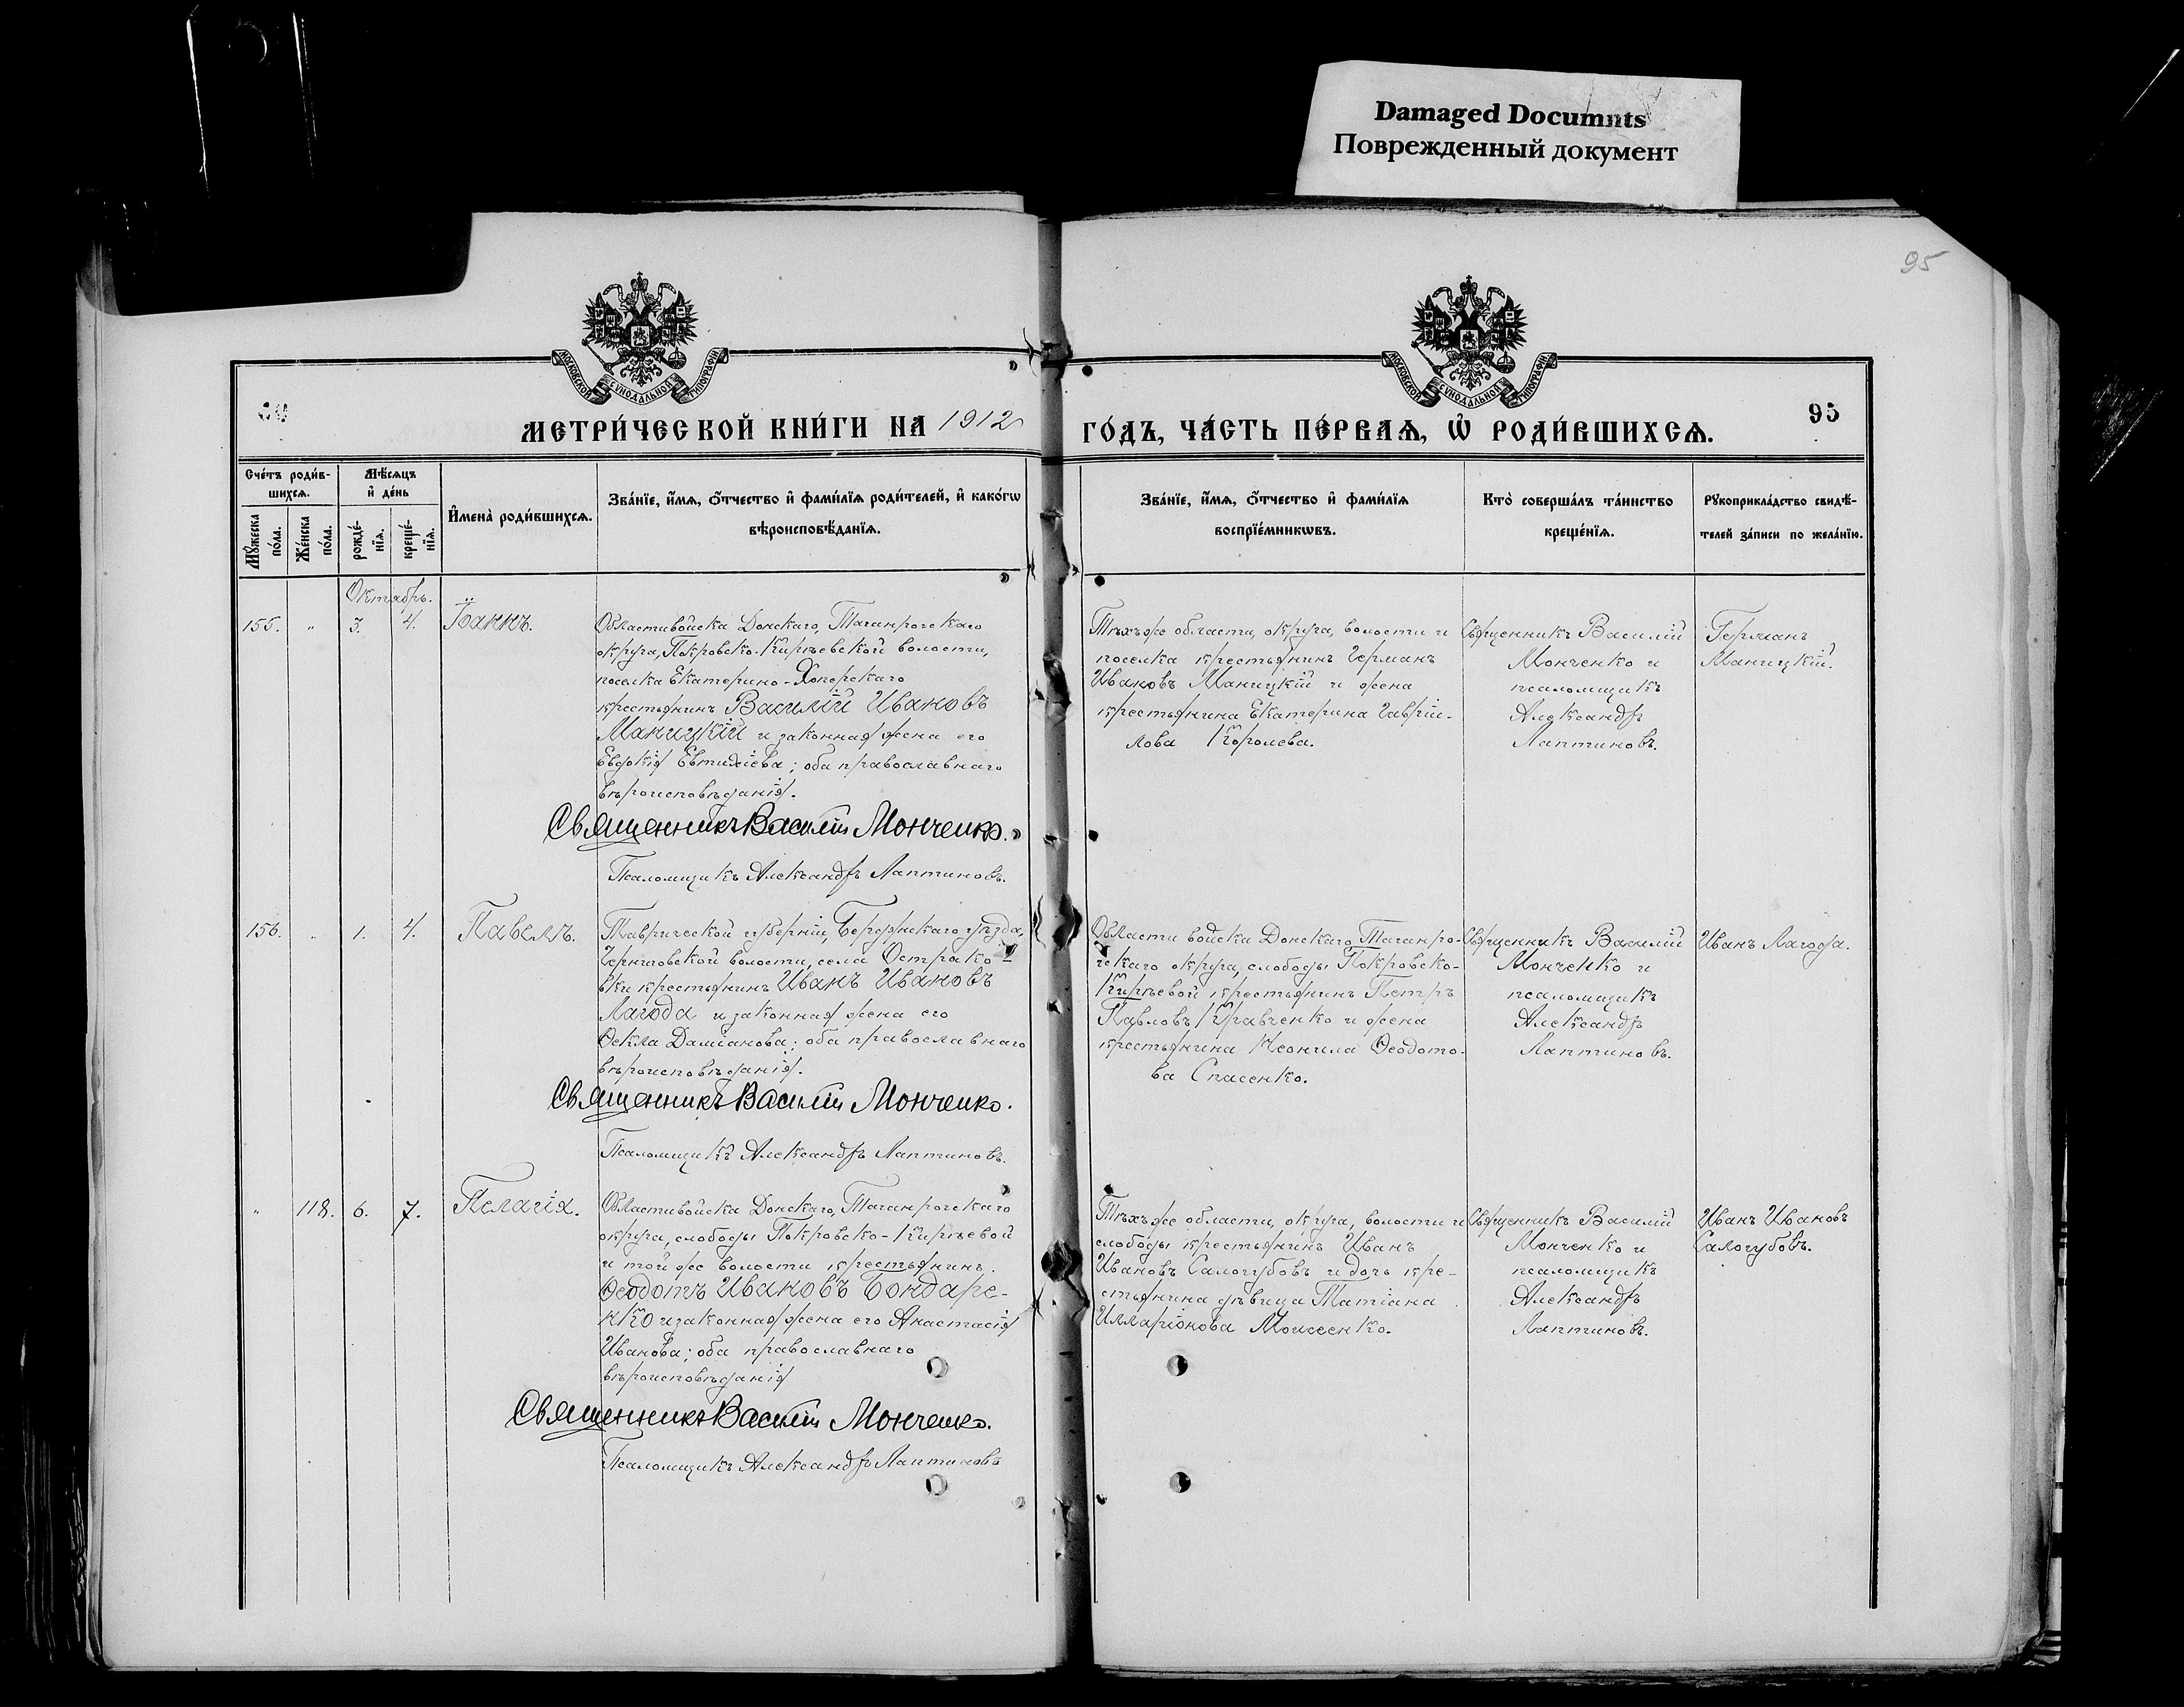 Damaged Documnts
Поврежденный документ
95
МОСКОВСКОЙ СѴНОДАЛЬНОЙ ТИПОГРАФІИ
МОСКОВСКОЙ СѴНОДАЛЬНОЙ ТИПОГРАФІИ
МЕТРИ́ЧЕСКОЙ КНИ́ГИ НА 1912
ГО́ДЪ, ЧА́СТЬ ПЕ́РВАѦ, Ѡ҆ РОДИ́ВШИХСѦ.
95
Сче́тъ роди́в-
шихсѧ.
Мѣ́сѧцъ
и҆ де́нь
Мꙋ́жеска
по́ла.
Же́нска
по́ла.
рожде́-
нїѧ.
креще́-
нїѧ.
И҆мена̀ роди́вшихсѧ.
Зва́нїе, и҆́мѧ, ѻ҆́тчество и҆ фами́лїѧ роди́телей, и҆ како́гѡ
вѣроисповѣ́данїѧ.
Зва́нїе, и҆́мѧ, ѻ҆́тчество и҆ фами́лїѧ
воспрїе́мникѡвъ.
Кто̀ соверша́лъ та́инство
креще́нїѧ.
Рꙋкоприкла́дство свидѣ́-
телей за́писи по жела́нїю.
Октябрь.
155. " 3. 4. Іоаннъ.
Области войска Донскаго, Таганрогскаго
округа, Покровско-Кирѣевской волости,
поселка Екатерино-Хоперскаго
крестьянинъ Василій Ивановъ
Маницкій и законная жена его
Евдокія Евтихіева; оба православнаго
вѣроисповѣданія.
Священникъ Василій Монченко.
Псаломщикъ Александръ Лаптиновъ.
Тѣхъ же области, округа, волости и
поселка крестьянинъ Германъ
Ивановъ Маницкій и жена
крестьянина Екатерина Гаврії-
лова Королева.
Священникъ Василій
Монченко и
псаломщикъ
Александръ
Лаптиновъ.
Германъ
Маницкій.
156. " 1. 4. Павелъ.
Таврической губерніи, Бердянскаго уѣзда,
Черниговской волости, села Остра
вки крестьянинъ Иванъ Ивановъ
Лагода и законная жена его
Ѳекла Даміанова; оба православнаго
вѣроисповѣданія.
Священникъ Василій Монченко.
Псаломщикъ Александръ Лаптиновъ.
Области войска Донскаго, Таганро-
гскаго округа, слободы Покровско-
Кирѣевой крестьянинъ Петръ
Павловъ Кравченко и жена
крестьянина Неонила Ѳеодото-
ва Спасенко.
Священникъ Василій
Монченко и
псаломщикъ
Александръ
Лаптиновъ.
Иванъ Лагода.
" 118. 6. 7. Пелагія.
Области войска Донскаго, Таганрогскаго
округа, слободы Покровско-Кирѣевой
и той же волости крестьянинъ
Ѳеодотъ Ивановъ Бондаре-
нко и законная жена его Анастасія
Иванова; оба православнаго
вѣроисповѣданія
Священникъ Василій Монченко.
Псаломщикъ Александръ Лаптиновъ
Тѣхъ же области, округа, волости и
слободы крестьянинъ Иванъ
Ивановъ Салогубовъ и дочь кре-
стьянина дѣвица Татіана
Илларіонова Моисеенко.
Священникъ Василій
Монченко и
псаломщикъ
Александръ
Лаптиновъ.
Иванъ Ивановъ
Салогубовъ.